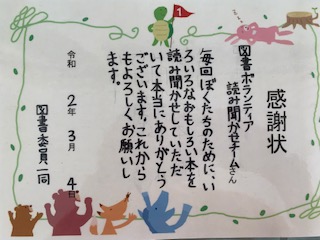 1
感謝状
図書ボランティア
読み聞かせチームさん
毎回ぼくたちのために、い
ろいろなおもしろい本を
読み聞かせしていただ
いて本当にありがとう
ございます。これから
もよろしくお願いし
ます。
令和2年3月4日
図書委員一同